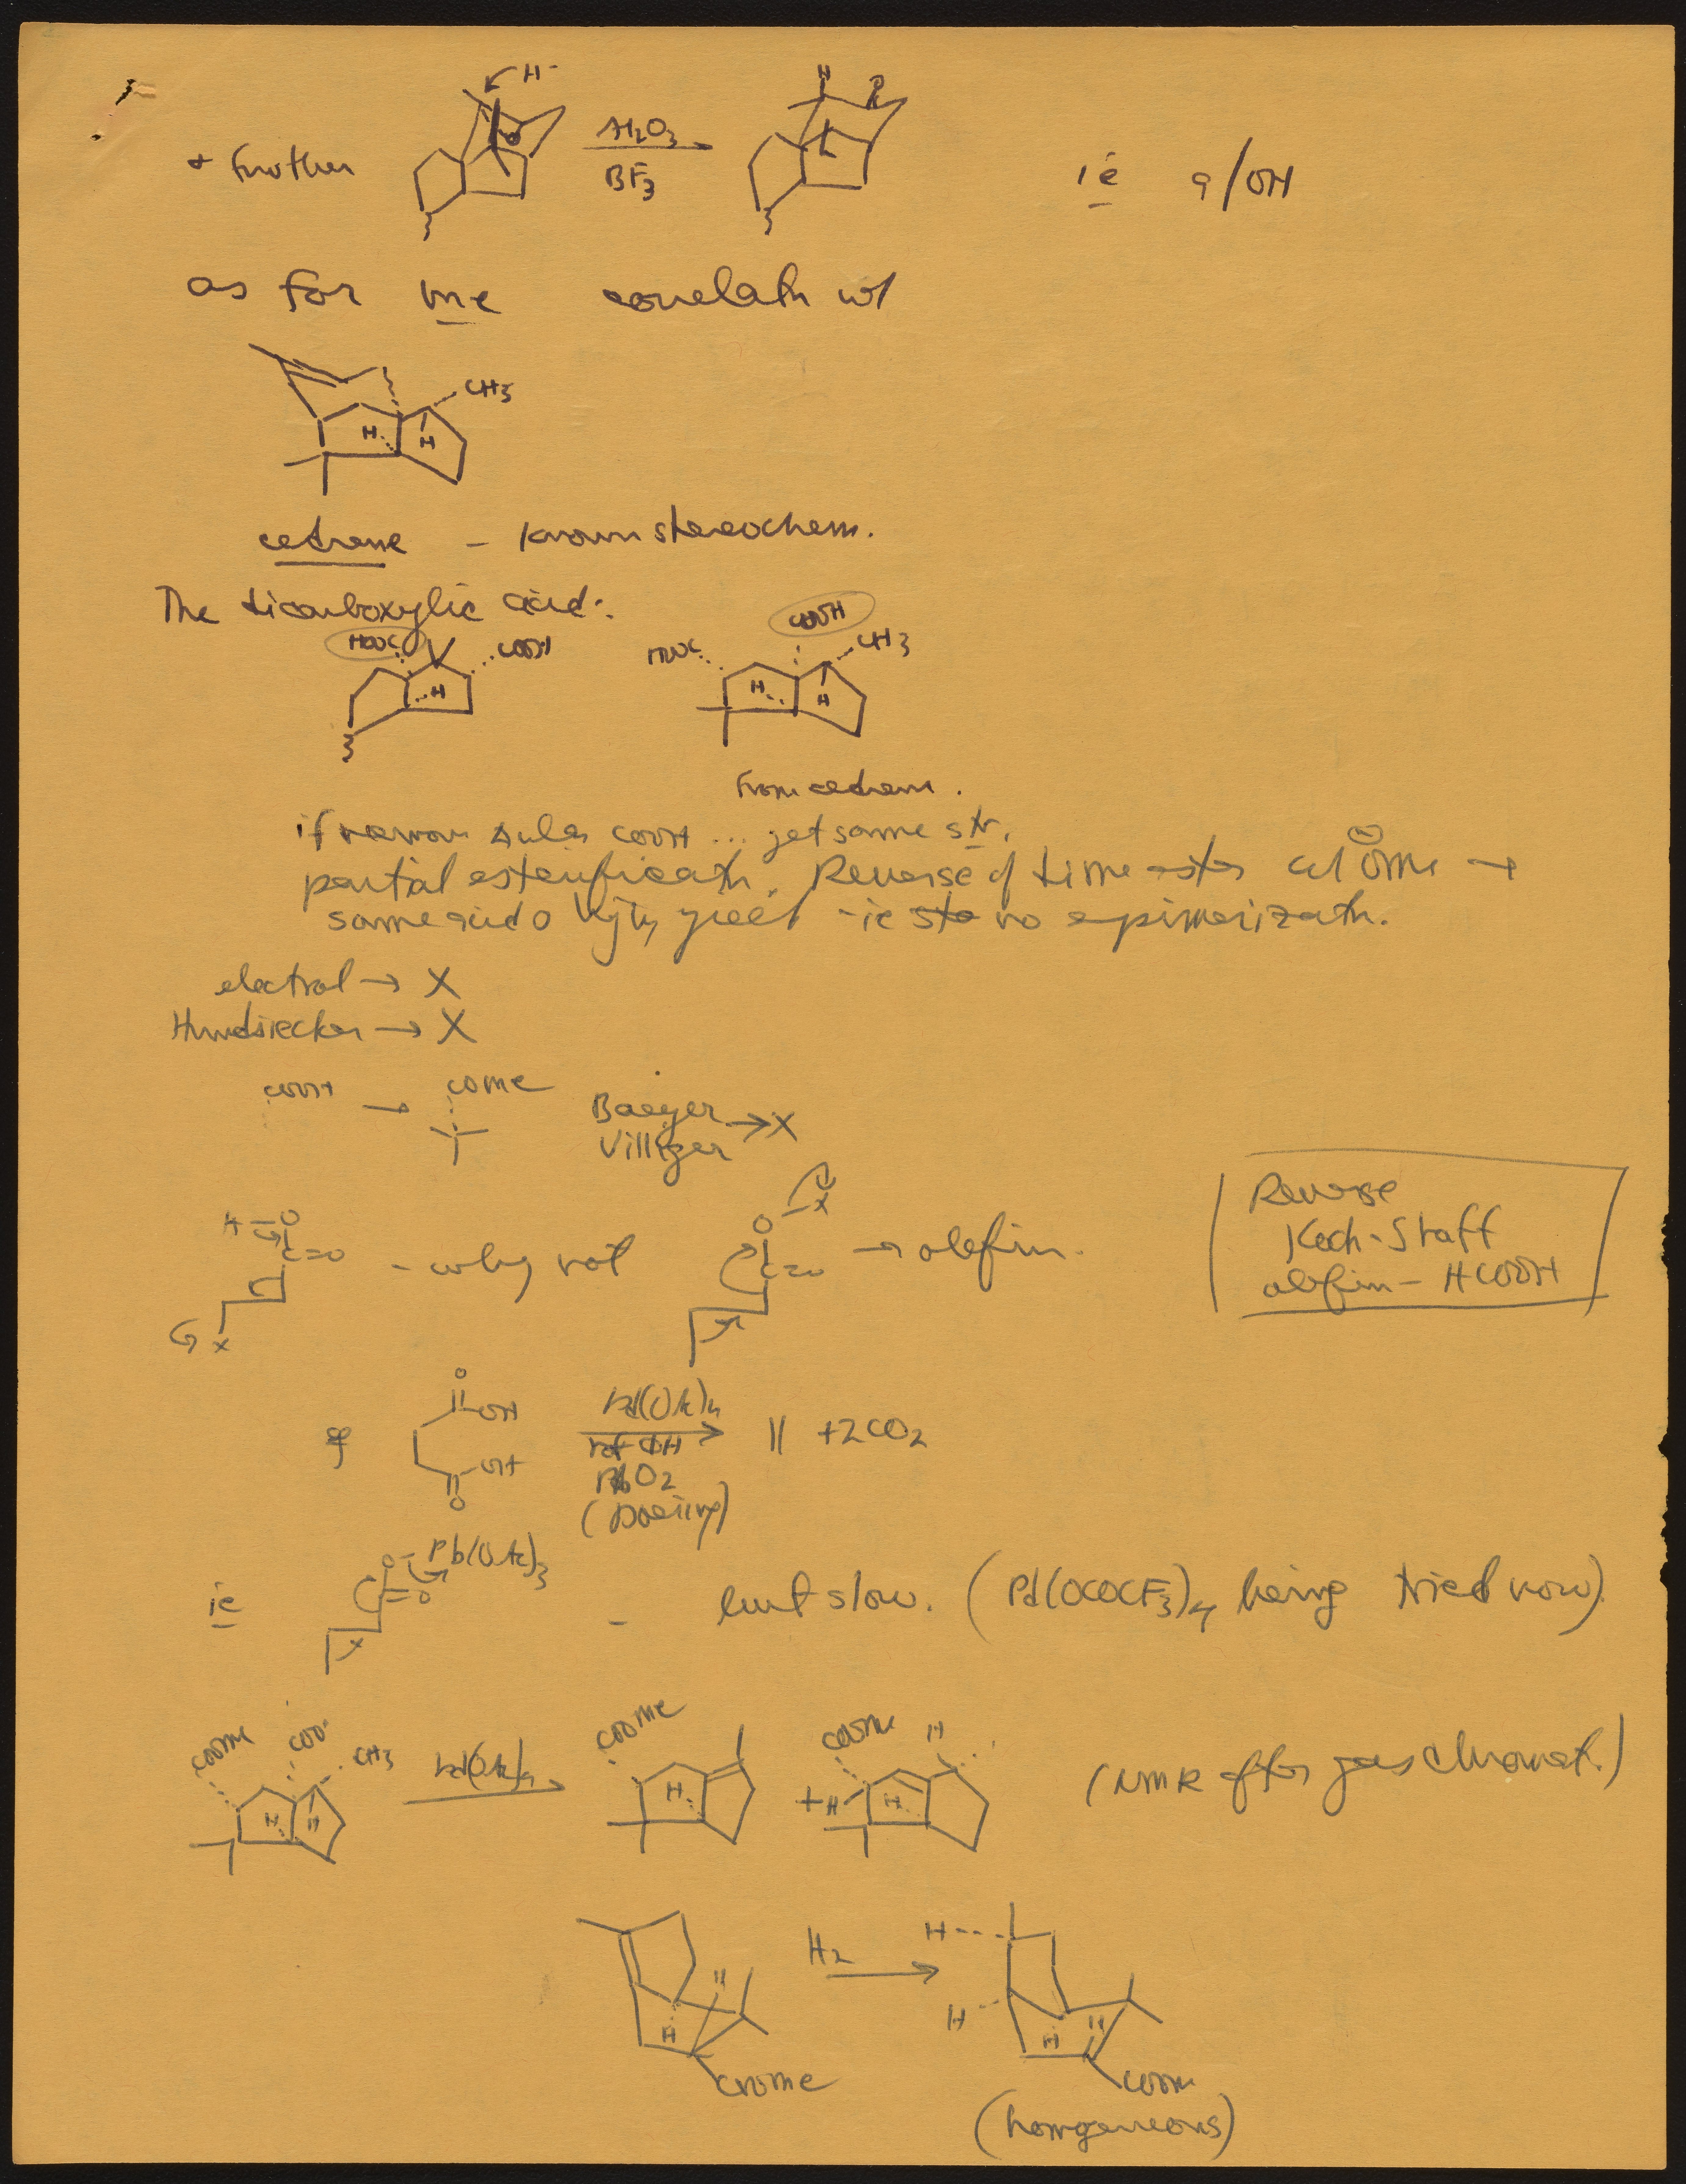 H⁻
+ further
Al₂O₃
BF₃
H
R
ie 9/OH
as for me correlatn w/
CH₃
H
H
cedrene - known stereochem.
The dicarboxylic acid:
HOOC
COOH
H
HOOC
COOH
CH₃
H
H
From cedrene.
if remove COOH ... get same str.
partial esterificatn. Reverse of dime ester w/ ⊖OMe →
same acid yield - ie no epimerizatn.
electrol → X
Hundsiecker → X
COOH → COMe
Baeyer
Villiger → X
H-O
C=O
x
- why not
O-x
C=O
→ olefin.
Reverse
Koch-Staff
olefin - HCOOH
O
OH
OH
O
Pd(OAc)₄
ref ΦH
PbO₂
(Doering)
|| + 2CO₂
ie
O-Pb(OAc)₃
=O
- but slow. (Pd(OCOCF₃)₄ being tried now)
COOMe
COO·
CH₃
H
H
Pd(OAc)₄
COOMe
H
+
COOMe
H
H
H
(NMR after gas chromat.)
H
H
COOMe
H₂
H
H
H
H
COOMe
(homogeneous)